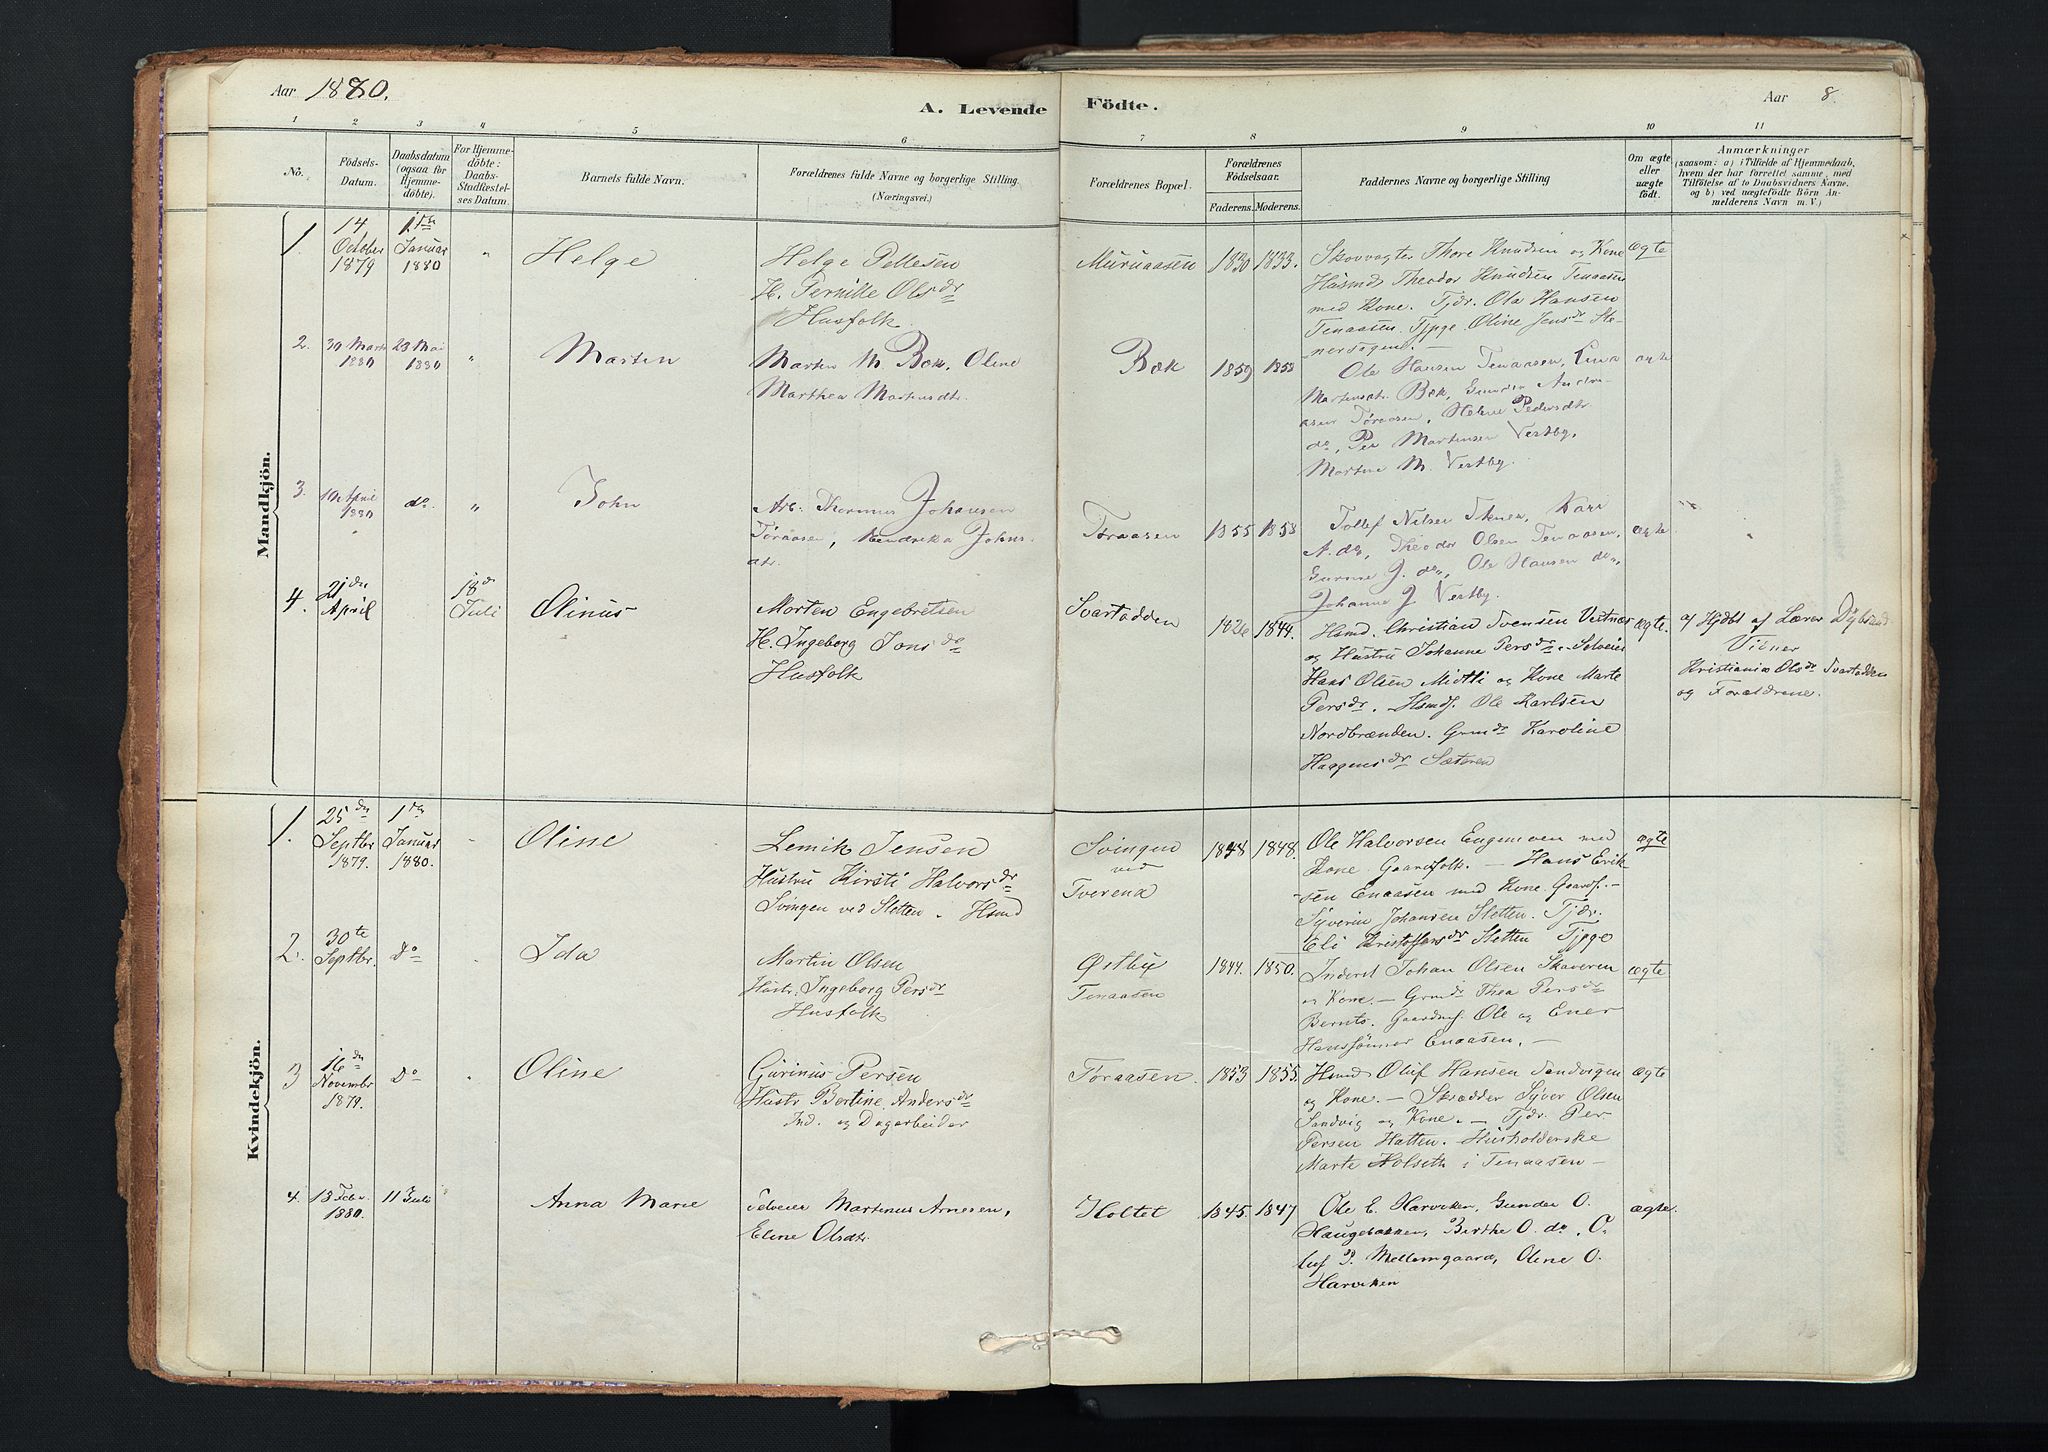 Aar 1880.
A. Levende Födte.
Aar 8.
1 2 3 4 5 6 7 8 9 10 11
No. Födsels-Datum. Daabsdatum (ogsaa for Hjemme-döbte). For Hjemme-döbte: Daabs-Stadfæstel-ses Datum. Barnets fulde Navn. Forældrenes fulde Navne og borgerlige Stilling (Næringsvei.) Forældrenes Bopæl. Forældrenes Födselsaar. Faderens. Moderens. Faddernes Navne og borgerlige Stilling Om ægte eller uægte födt. Anmærkninger (saasom: a) i Tilfælde af Hjemmedaab, hvem der har forrettet samme, med Tilföielse af to Daabsvidners Navne, og b) ved uægtefödte Börn An-melderens Navn m. V.)
Mandkjön.
1. 14 October 1879
1ste Januar 1880
"
Helge
Helge Pellesen
H. Pernille Olsdr
Husfolk
Muruaasen
1830 1833.
Skovvogter Thore Knudsen og Kone
Husmd Theodor Knudsen Tenaasen
med Kone. Tjdr. Ola Hansen
Tenaasen. Tjpge. Oline Jensdr Ste-
nersøgen. —
ægte
2. 30 Marts 1880
23 Mai 1880
"
Martin
Martin M. Bæk, Oline
Marthea Martinsdtr.
Bæk
1859 1858
Ole Hansen Tenaasen,
Martinsdtr. Bæk, Gunder
Töraasen, Helene Pedersdtr.
do, Per Martinsen Vestby,
Martine M. Vestby.
ægte
3. 10 April 1880
do.
"
John
Arb. Thommas Johansen
Töraasen, Hendrika Johns-
dtr.
Töraasen
1855 1858
Tollef Nilsen, Kari
N. do, Theodor Olsen Tenaasen,
Gurine J. do, Ole Hansen do,
Johanne J Vestby.
ægte
4. 21de April
18de Juli
Olinus
Morten Engebretsen
H. Ingeborg Jonsdr
Husfolk
Svartadden
1826 1844.
Hsmd. Christian Svensen Vestnæs
og Hustru Johanne Persdr. Selveier
Hans Olsen Midtli og Kone Marte
Persdr. Hsmdf. Ole Karlsen
Nordbrænden. Grmdr Karoline
Haagensdr Sæteren
ægte.
af Hjdbt af Lærer Dybsand
Vidner
Kristiania Olsdr Svartadden
og Forældrene.
Kvindekjön.
1. 25de Septbr 1879.
1ste Januar 1880.
Oline
Lemik Jensen
Hustru Kirsti Halvorsdr
Svingen ved Sletten. Hsmd
Svingen
ved
Tverena
1848 1848.
Ole Halvorsen Engemoen med
Kone Gaardfolk. — Hans Erik-
sen Enaasen med Kone Gaardf. —
Syverin Johansen Sletten. Tjdr.
Eli Kristoffersdr Sletten Tjpge
ægte
2. 30te Septbr.
Do
Ida
Martin Olsen
Hustr. Ingeborg Persdr
Husfolk
Østby
Tenaasen
1844. 1850.
Inderst Johan Olsen Skaveren
og Kone. — Grmdr Thea Persdr
Bernts. Gaardmf. Ole og Ener
Hanssønner Enaasen. —
ægte
3 16de Novembr 1879.
Do
Oline
Gurinus Persen
Hustr Bertine Andersdr
Ind. og Dagarbeider
Töraasen.
1853 1855.
Hsmd Oluf Hansen Sandvigen
og Kone. — Skrædder Syver Olsen
Sandvig og Kone. — Tjdr. Per
Persen Hatten. Husholderske
Marte Holseth i Tenaasen —
ægte
4. 13 Febr. 1880.
11 Juli
Anna Marie
Selveier Martinus Arnesen,
Eline Olsdtr.
Holtet
1845. 1847
Ole E. Harviken, Gunder O.
Haugebakken, Birthe O. do, O-
luf P. Mellemgaard, Olene O.
Harviken
ægte.